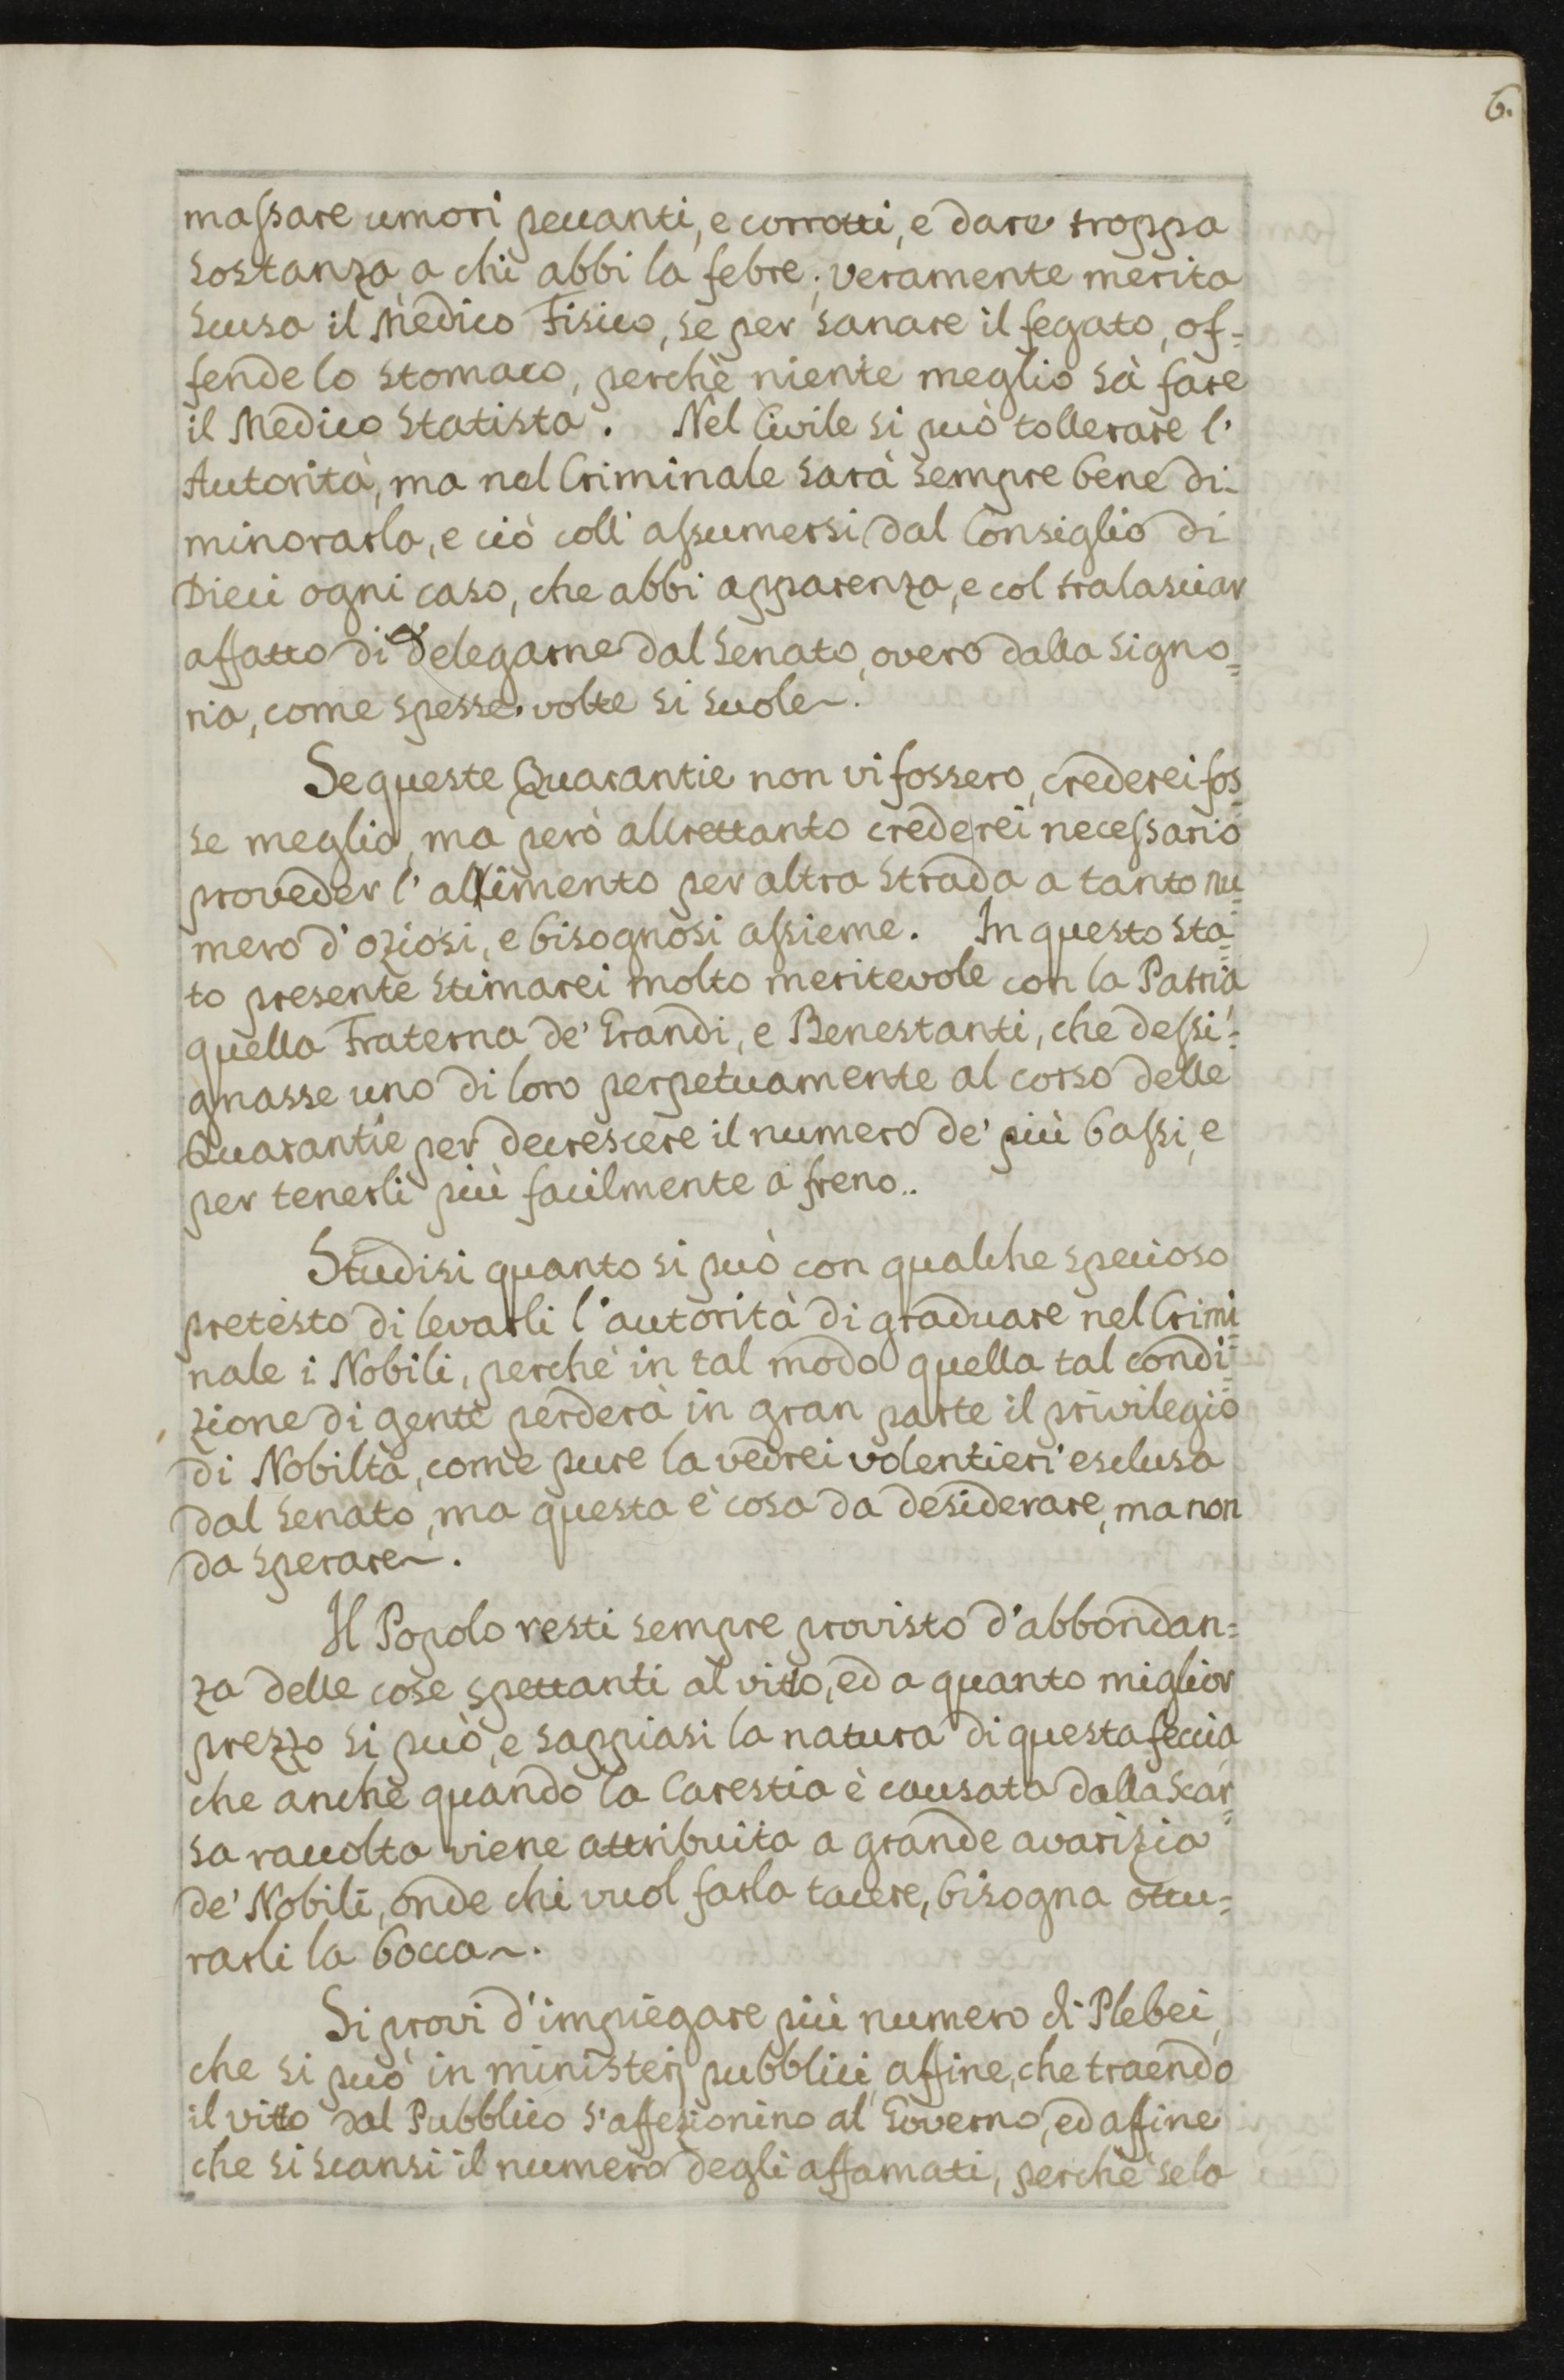 6.
massare umori peccanti, e corrotti, e dare troppa
sostanza a chi abbi la febre; veramente merita
scusa il Medico Fisico, se per sanare il fegato, of=
fende lo stomaco, perchè niente meglio sà fare
il Medico Statista. Nel Civile si può tollerare l'
Autorità, ma nel Criminale sarà sempre bene di=
minorarla, e ciò coll' assumersi dal Consiglio di
Dieci ogni caso, che abbi apparenza, e col tralasciar
affatto di delegarne dal Senato, overo dalla Signo=
ria, come spesse volte si suole.
Se queste Quarantie non vi fossero, crederei fos=
se meglio, ma però altrettanto crederei necessario
proveder l'alimento per altra strada a tanto nu=
mero d'oziosi, e bisognosi assieme. In questo sta=
to presente stimarei molto meritevole con la Patria
quella Fraterna de' Grandi, e Benestanti, che dessi=
gnasse uno di loro perpetuamente al corso delle
Quarantie per decrescere il numero de' più bassi, e
per tenerli più facilmente a freno..
Studisi quanto si può con qualche specioso
pretesto di levarli l'autorità di graduare nel Crimi=
nale i Nobili, perchè in tal modo quella tal condi=
zione di gente perderà in gran parte il privilegio
di Nobiltà, come pure la vedrei volentieri esclusa
dal Senato, ma questa è cosa da desiderare, ma non
da sperare.
Il Popolo resti sempre provisto d'abbondan=
za delle cose spettanti al vitto, ed a quanto miglior
prezzo si può, e sappiasi la natura di questa feccia
che anche quando la Carestia è causata dalla scar=
sa raccolta viene attribuita a grande avarizia
de' Nobili, onde chi vuol farla tacere, bisogna ottu=
rarli la bocca.
Si provi d'impiegare più numero di Plebei,
che si può in ministerj pubblici, affine, che traendo
il vitto dal Pubblico s'affezionino al Governo, ed affine
che si scansi il numero degli affamati, perchè se la